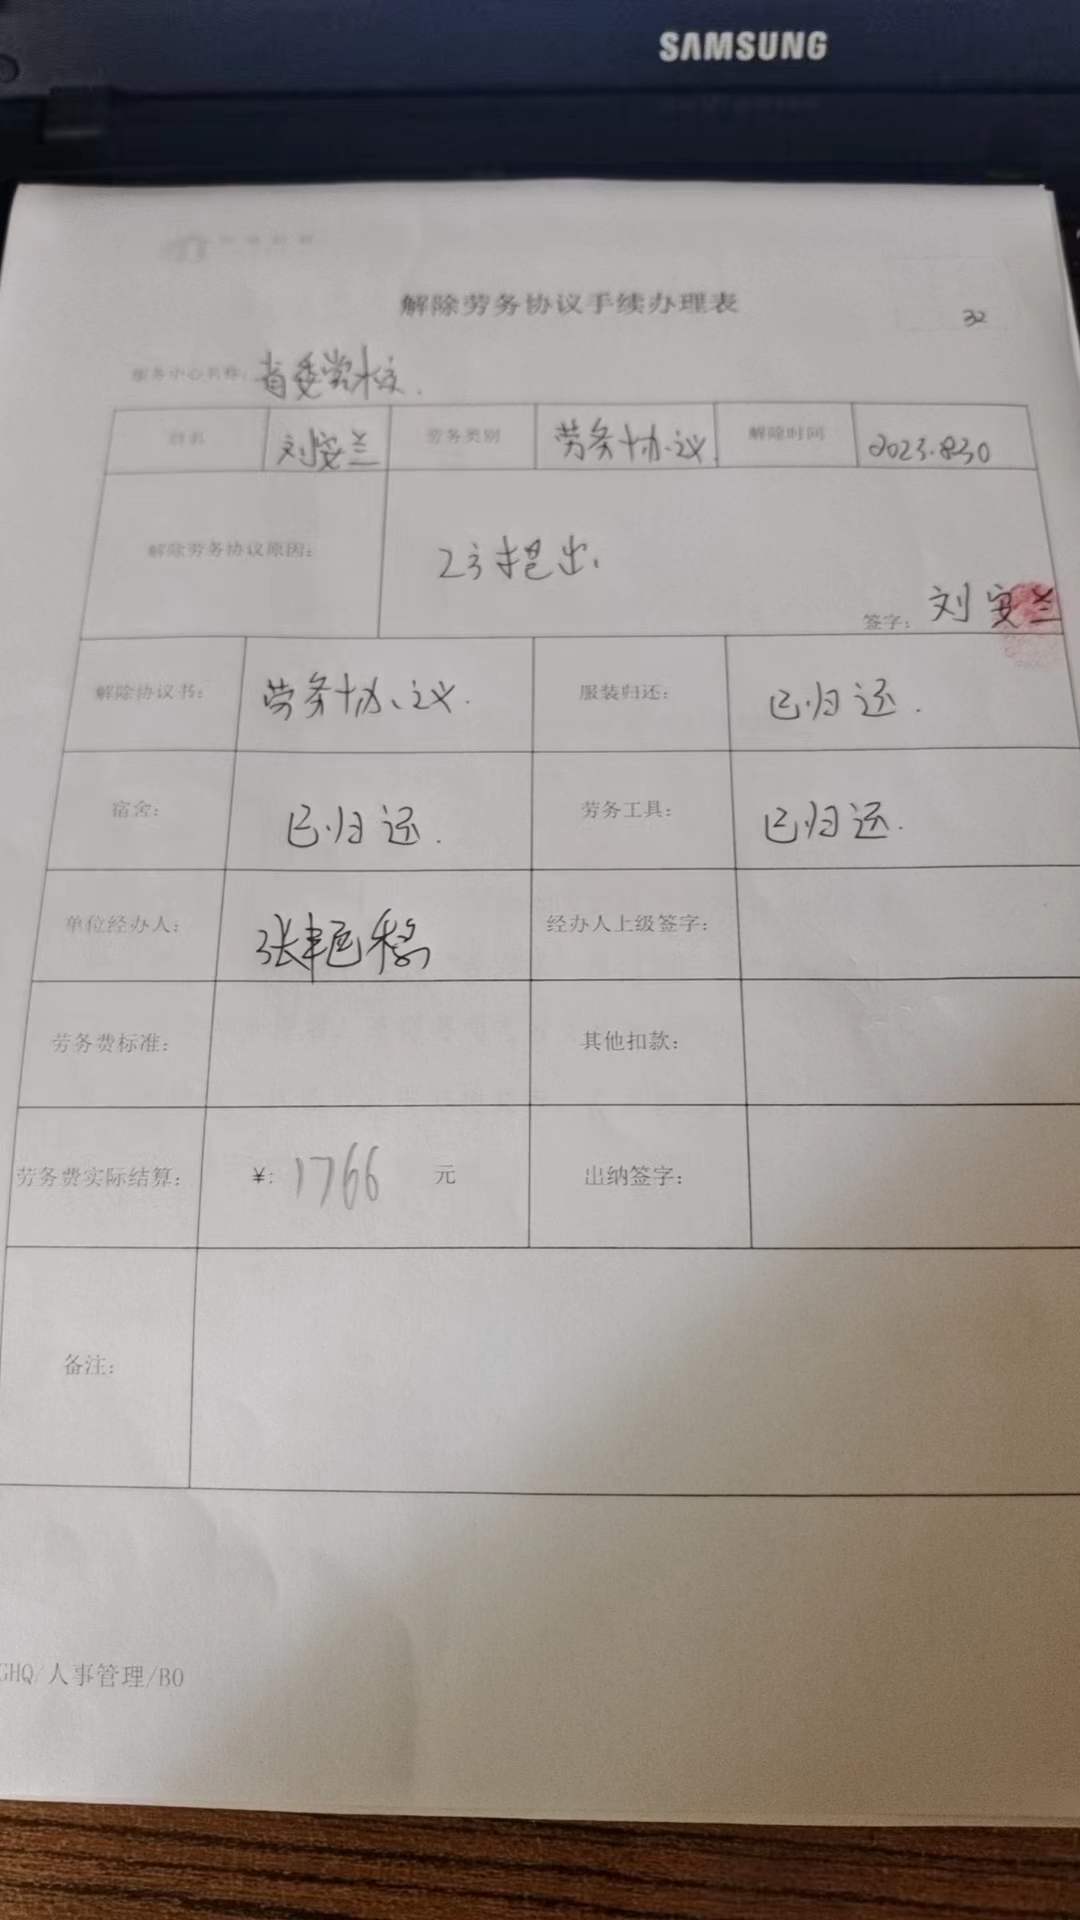 SAMSUNG
解除劳务协议手续办理表
32
服务中心名称：省委党校.
姓名 刘安兰 劳务类别 劳务协议 解除时间 2023.8.30
解除劳务协议原因： 乙方提出.
签字： 刘安兰
解除协议书： 劳务协议. 服装归还： 已归还.
宿舍： 已归还. 劳务工具： 已归还.
单位经办人： 张艳 经办人上级签字：
劳务费标准： 其他扣款：
劳务费实际结算： ¥: 1766 元 出纳签字：
备注：
GHQ/人事管理/B0